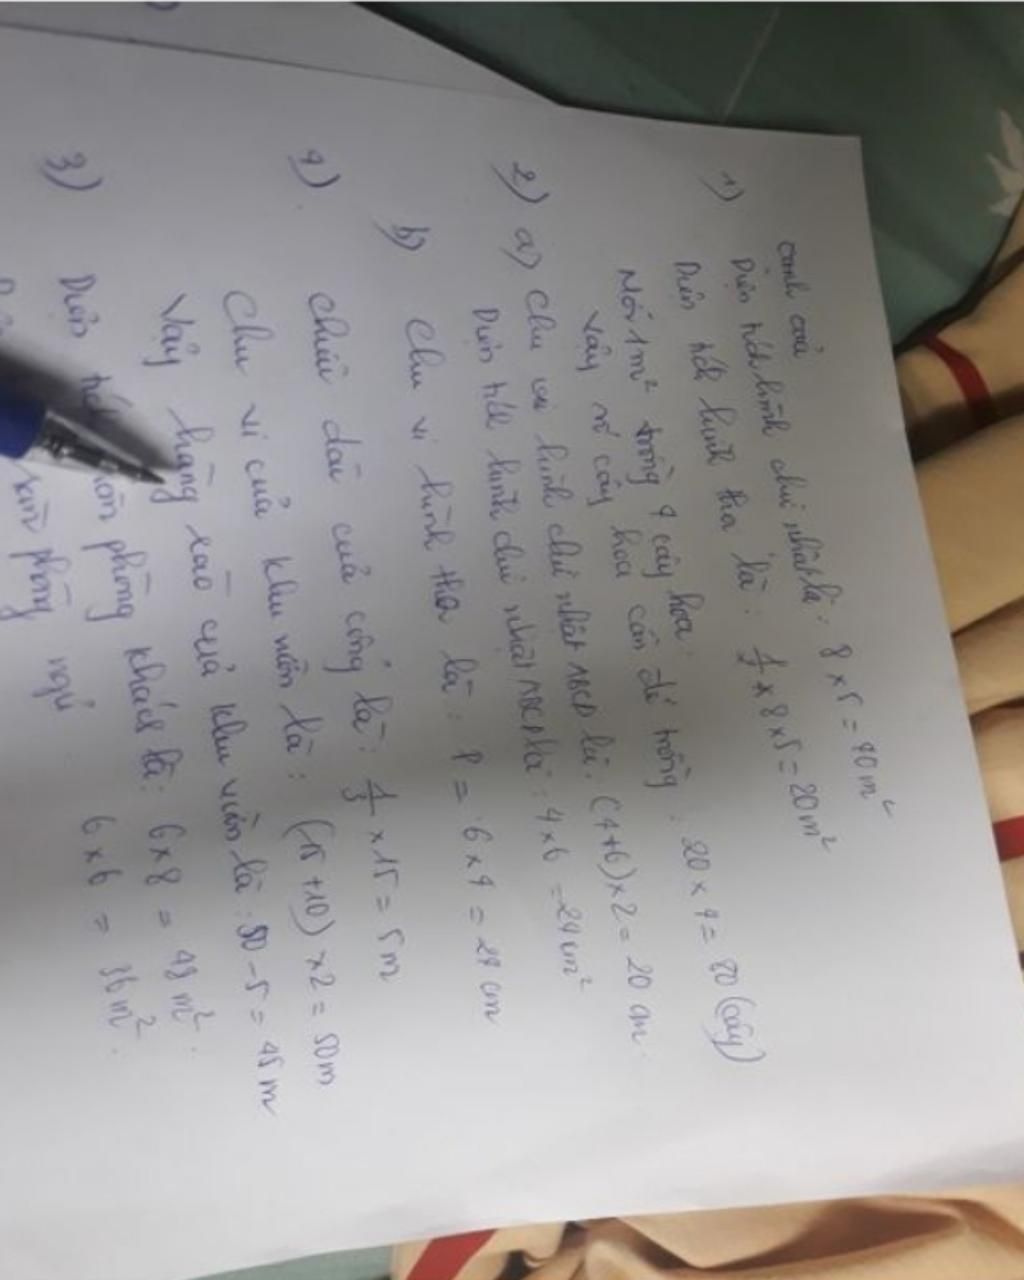 Cảnh cả
1) Diện tích hình chữ nhật là: 8 x 5 = 40 m²
Diện tích hình thoi là: 1/2 x 8 x 5 = 20 m²
Mỗi 1m² trồng 4 cây hoa
Vậy số cây hoa cần để trồng: 20 x 4 = 80 (cây)
2) a) Chu vi hình chữ nhật ABCD là: (4+6) x 2 = 20 cm
Diện tích hình chữ nhật ABCD là: 4 x 6 = 24 cm²
b) Chu vi hình thoi là: P = 6 x 4 = 24 cm
4) Chiều dài của cổng là: 1/3 x 15 = 5 m
Chu vi của khu vườn là: (15 + 10) x 2 = 50m
Vậy hàng rào của khu vườn là: 50 - 5 = 45 m
3) Diện tích phòng khách là: 6 x 8 = 48 m².
phòng ngủ 6 x 6 = 36 m².